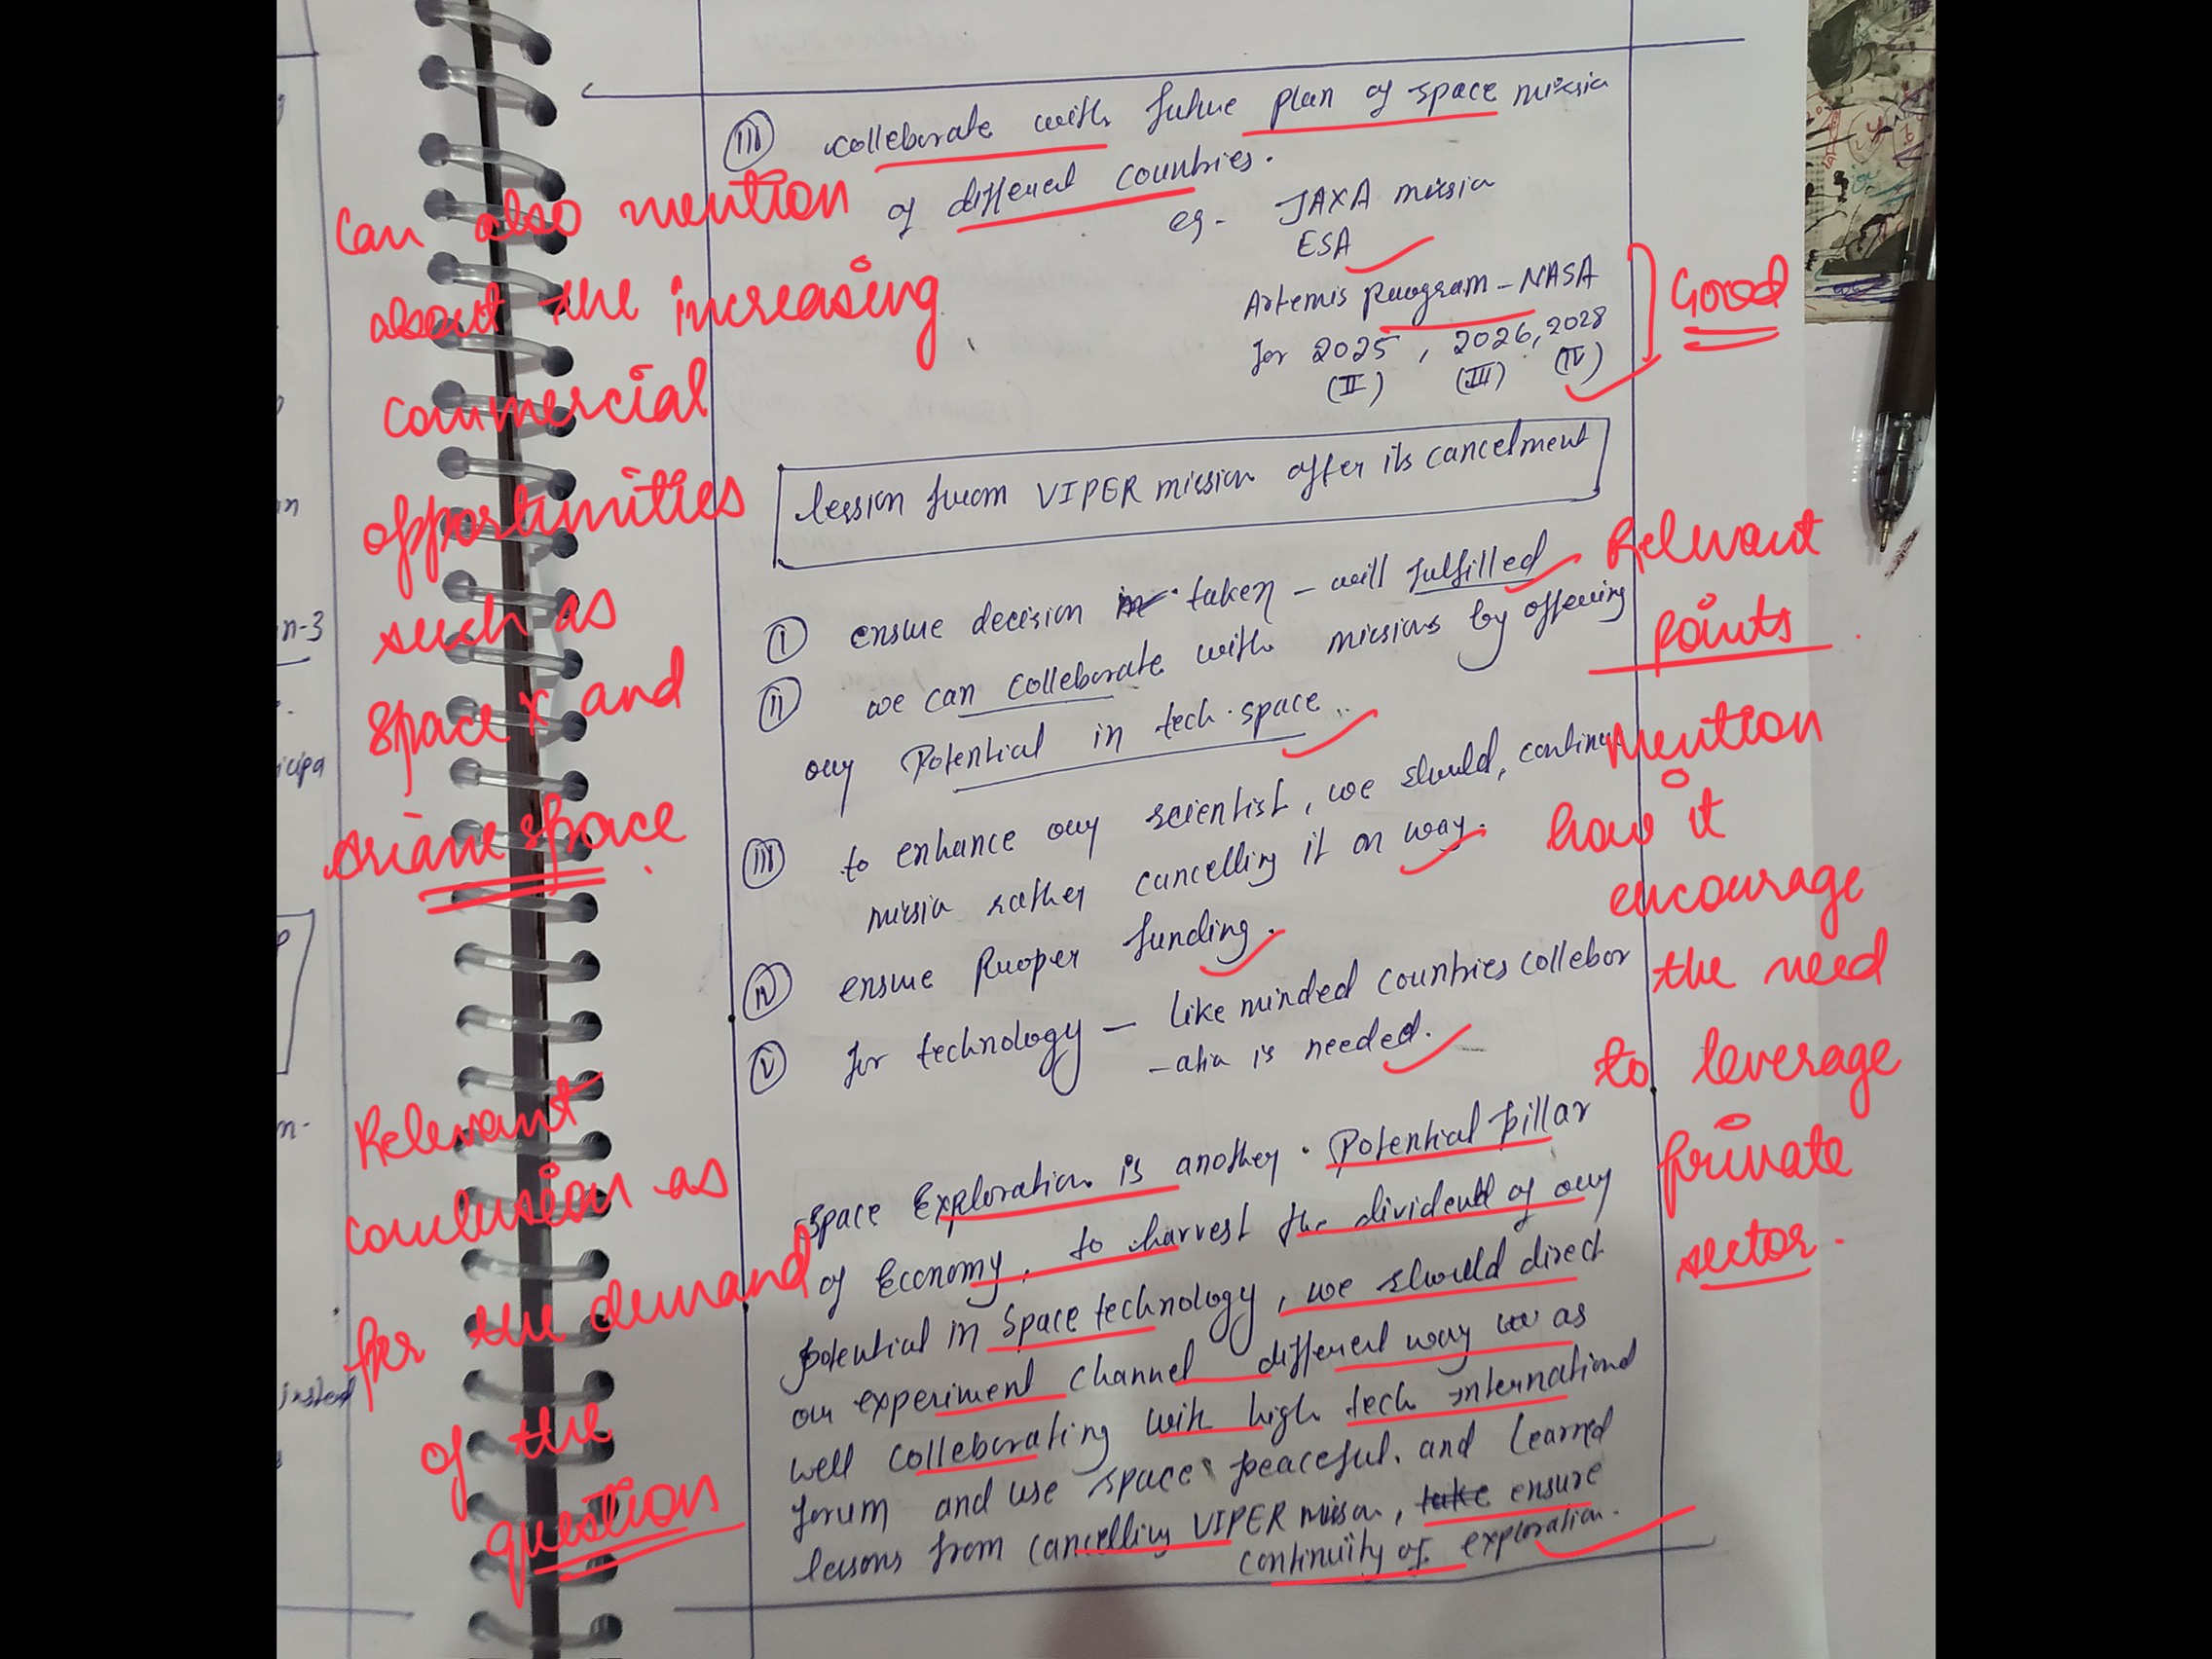 (III) colleborate with future plan of space missia
of different countries.
eg - JAXA missia
ESA
Artemis Program - NASA
for 2025, 2026, 2028
(II) (III) (IV)
Good
can also mention
about the increasing
commercial
opportunities
such as
space x and
ariane space.
lession from VIPER mission after its cancelment
(I) ensure decision taken - will fulfilled
(II) we can colleborate with missions by offering
our Potential in tech. space..
(III) to enhance our scientist, we should, continue
missia rather cancelling it on way.
(IV) ensure Proper funding.
(V) for technology - like minded countries collebor
-atia is needed.
Relevant
points.
mention
how it
encourage
the need
to leverage
private
sector.
Space Exploration is another Potential pillar
of Economy, to harvest the dividend of our
potential in Space technology, we should direct
our experiment channel different way as
well colleborating with high tech international
forum and use space peaceful. and learned
lessons from cancelling VIPER misson, take ensure
continuity of exploration.
Relevant
conclusion as
per the demand
of the
question
n-3
icipa
n-
insted